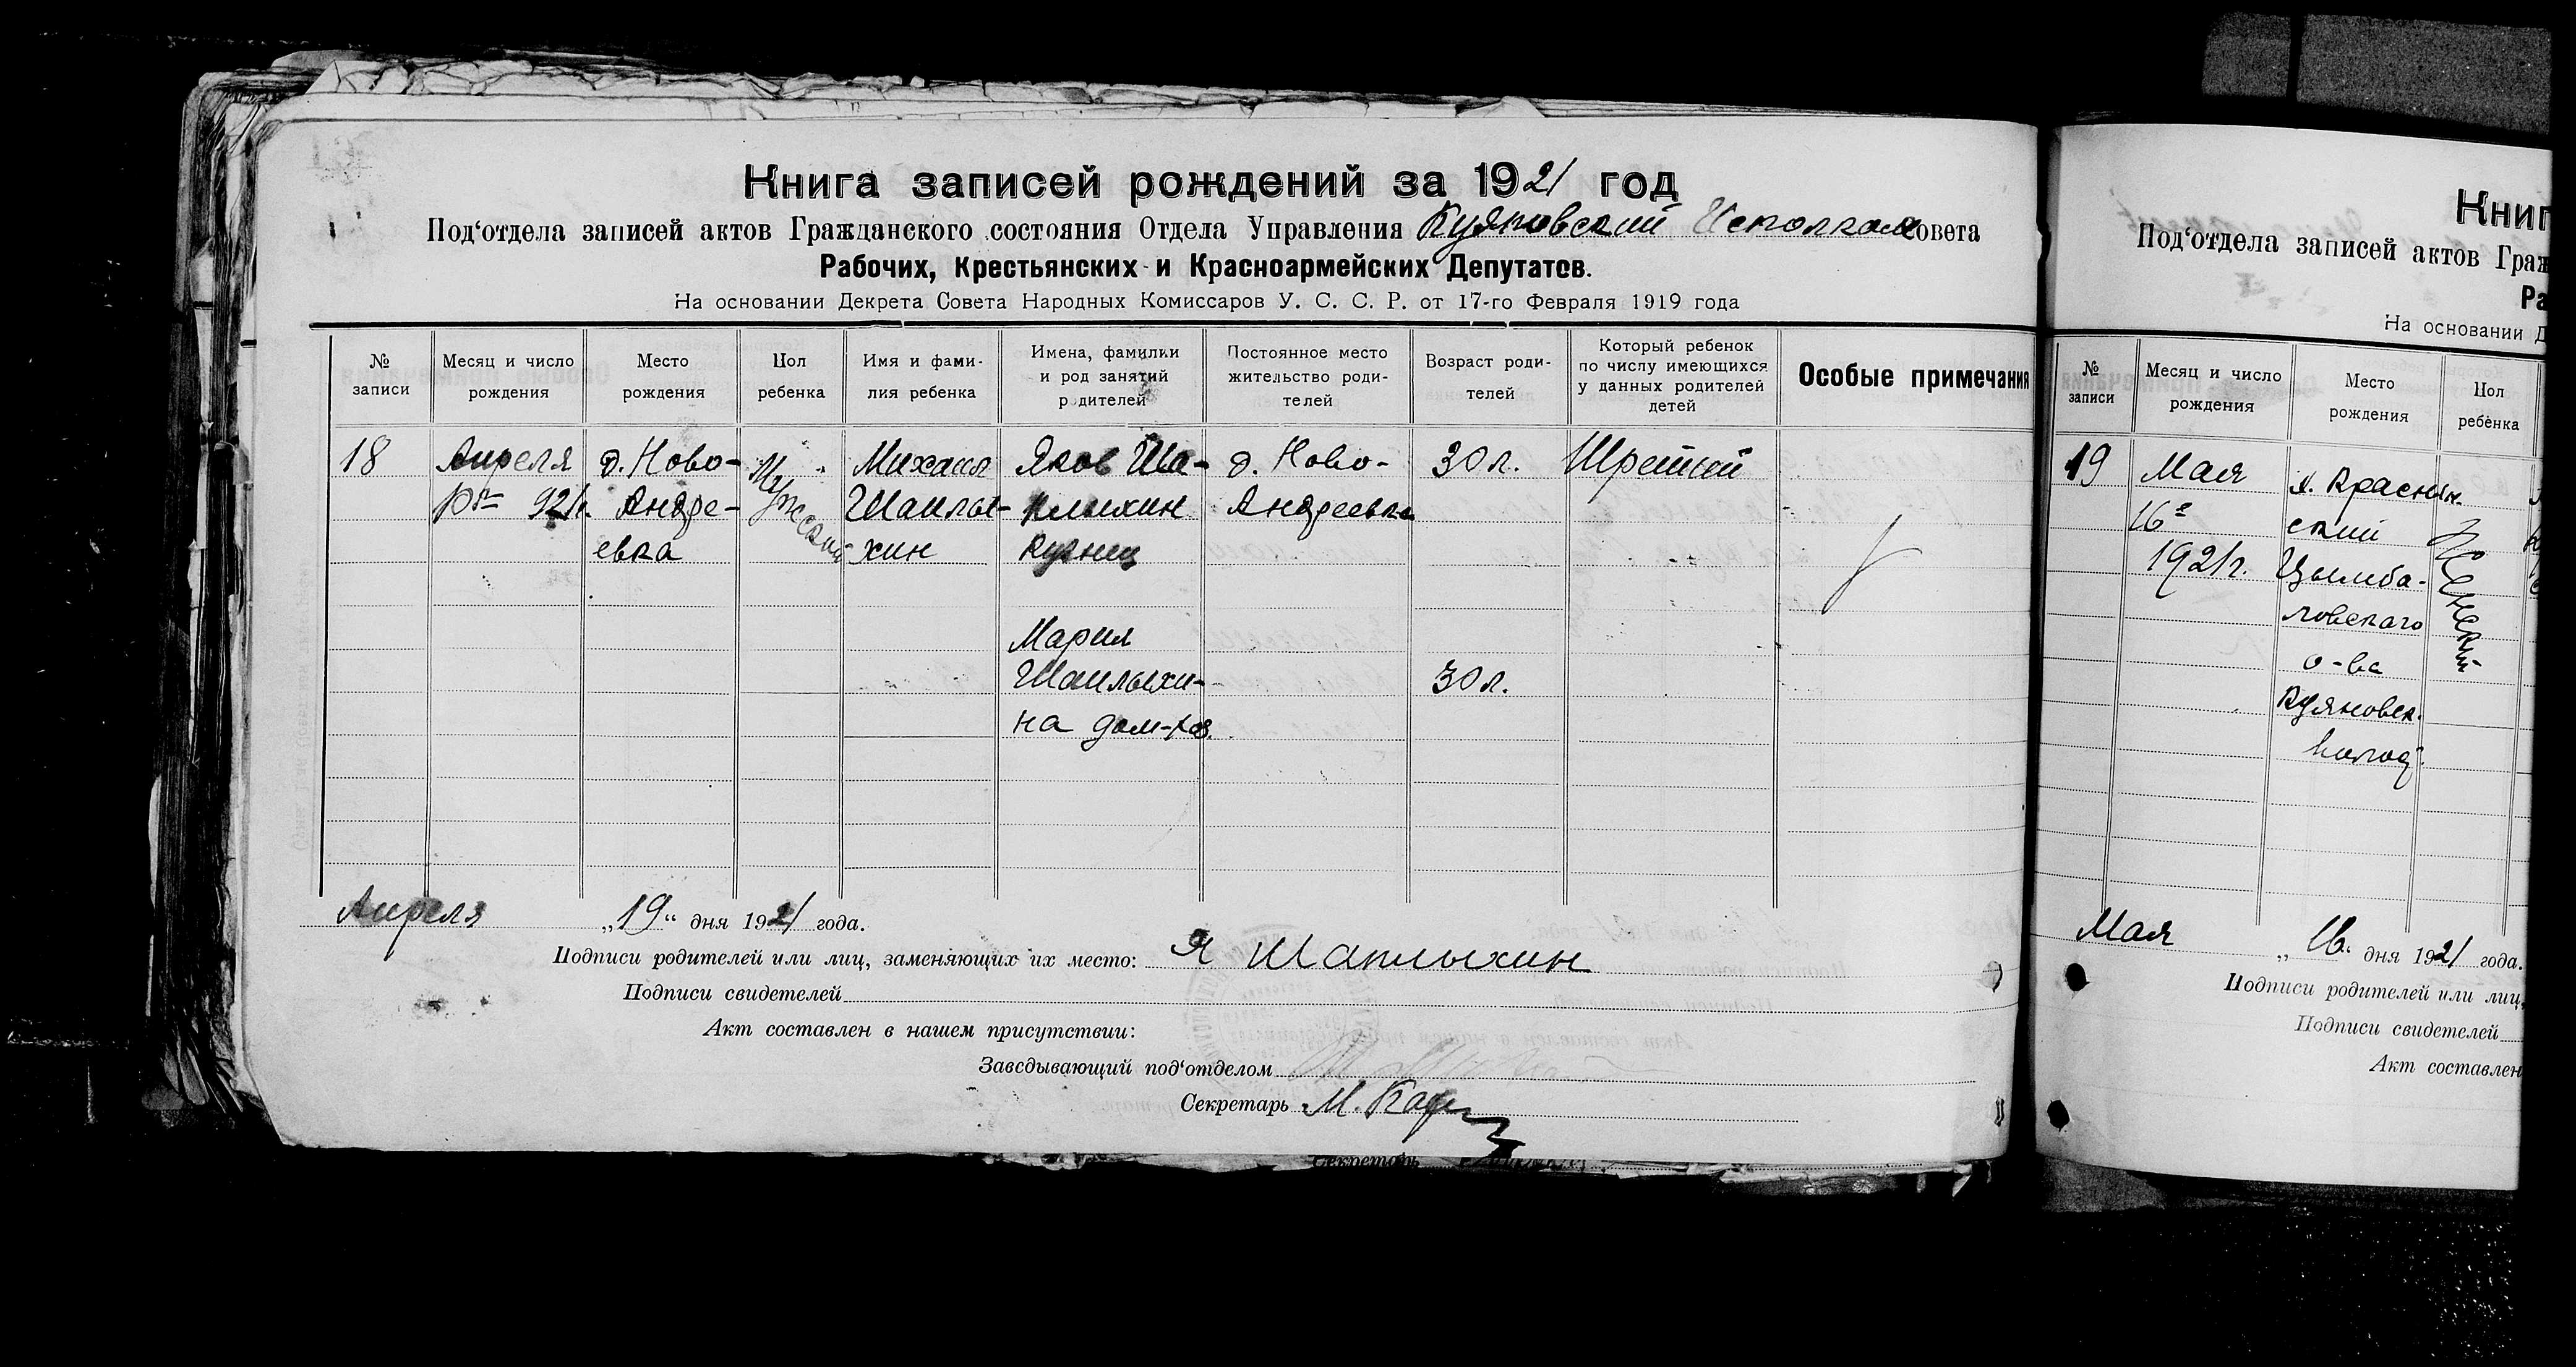 Книга записей рождений за 1921 год
Под‘отдела записей актов Гражданского состояния Отдела Управления Кудяновский Исполком Совета
Рабочих, Крестьянских и Красноармейских Депутатов.
На основании Декрета Совета Народных Комиссаров У. С. С. Р. от 17-го Февраля 1919 года
№ записи
Месяц и число рождения
Место рождения
Пол ребенка
Имя и фамилия ребенка
Имена, фамилки и род занятий родителей
Постоянное место жительство родителей
Возраст родителей
Который ребенок по числу имеющихся у данных родителей детей
Особые примечания
18
Апреля
921г.
д. Ново-
Андре-
евка
Мужской
Михаил
хин
Яков Ша-
Кузнец
Мария
на дом-
д. Ново-
Андреевка
30 л.
30 л.
Третий
Апреля „19“ дня 1921 года.
Подписи родителей или лиц, заменяющих их место: Я
Подписи свидетелей
Акт составлен в нашем присутствии:
Заведывающий под‘отделом
Секретарь М.
Секретарь
Книг
Под‘отдела записей актов Граж
Ра
На основании Д
№ записи
Месяц и число рождения
Место рождения
Пол ребёнка
19
Мая
16го
1921г.
х. Краснян.
ский
Цымба-
ловскаго
о-ва
Кудяновск.
волос.
Женский
Мая „16“ дня 1921 года.
Подписи родителей или лиц,
Подписи свидетелей
Акт составлен